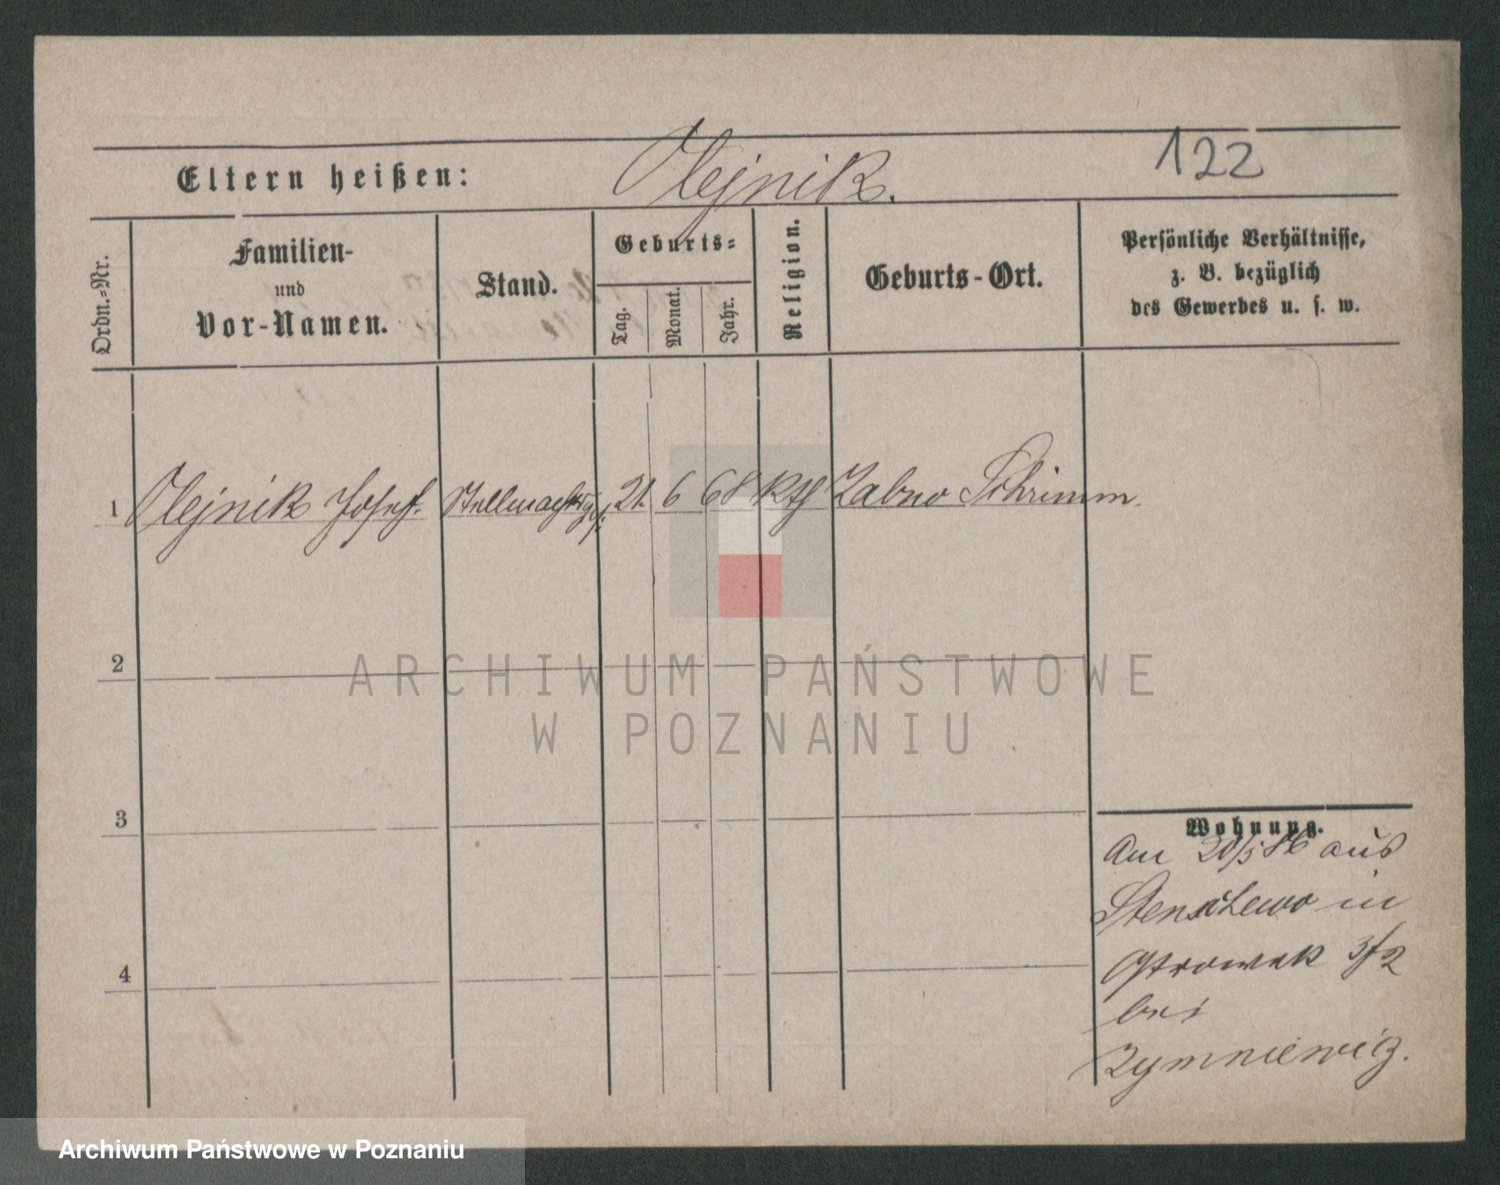 Eltern heißen: Olejnik. 122
Ordn.-Nr.
Familien-
und
Vor-Namen.
Stand.
Geburts-
Tag.
Monat.
Jahr.
Religion.
Geburts-Ort.
Persönliche Verhältnisse,
z. B. bezüglich
des Gewerbes u. s. w.
1 Olejnik Josef. Stellmacherges. 21. 6 68 Kth Zabno Schrimm.
2
ARCHIWUM PAŃSTWOWE
W POZNANIU
3
4
Wohnung.
Am 20/5 86 aus
in
Ostrowek 3/2
bei
Zymniewicz.
Archiwum Państwowe w Poznaniu